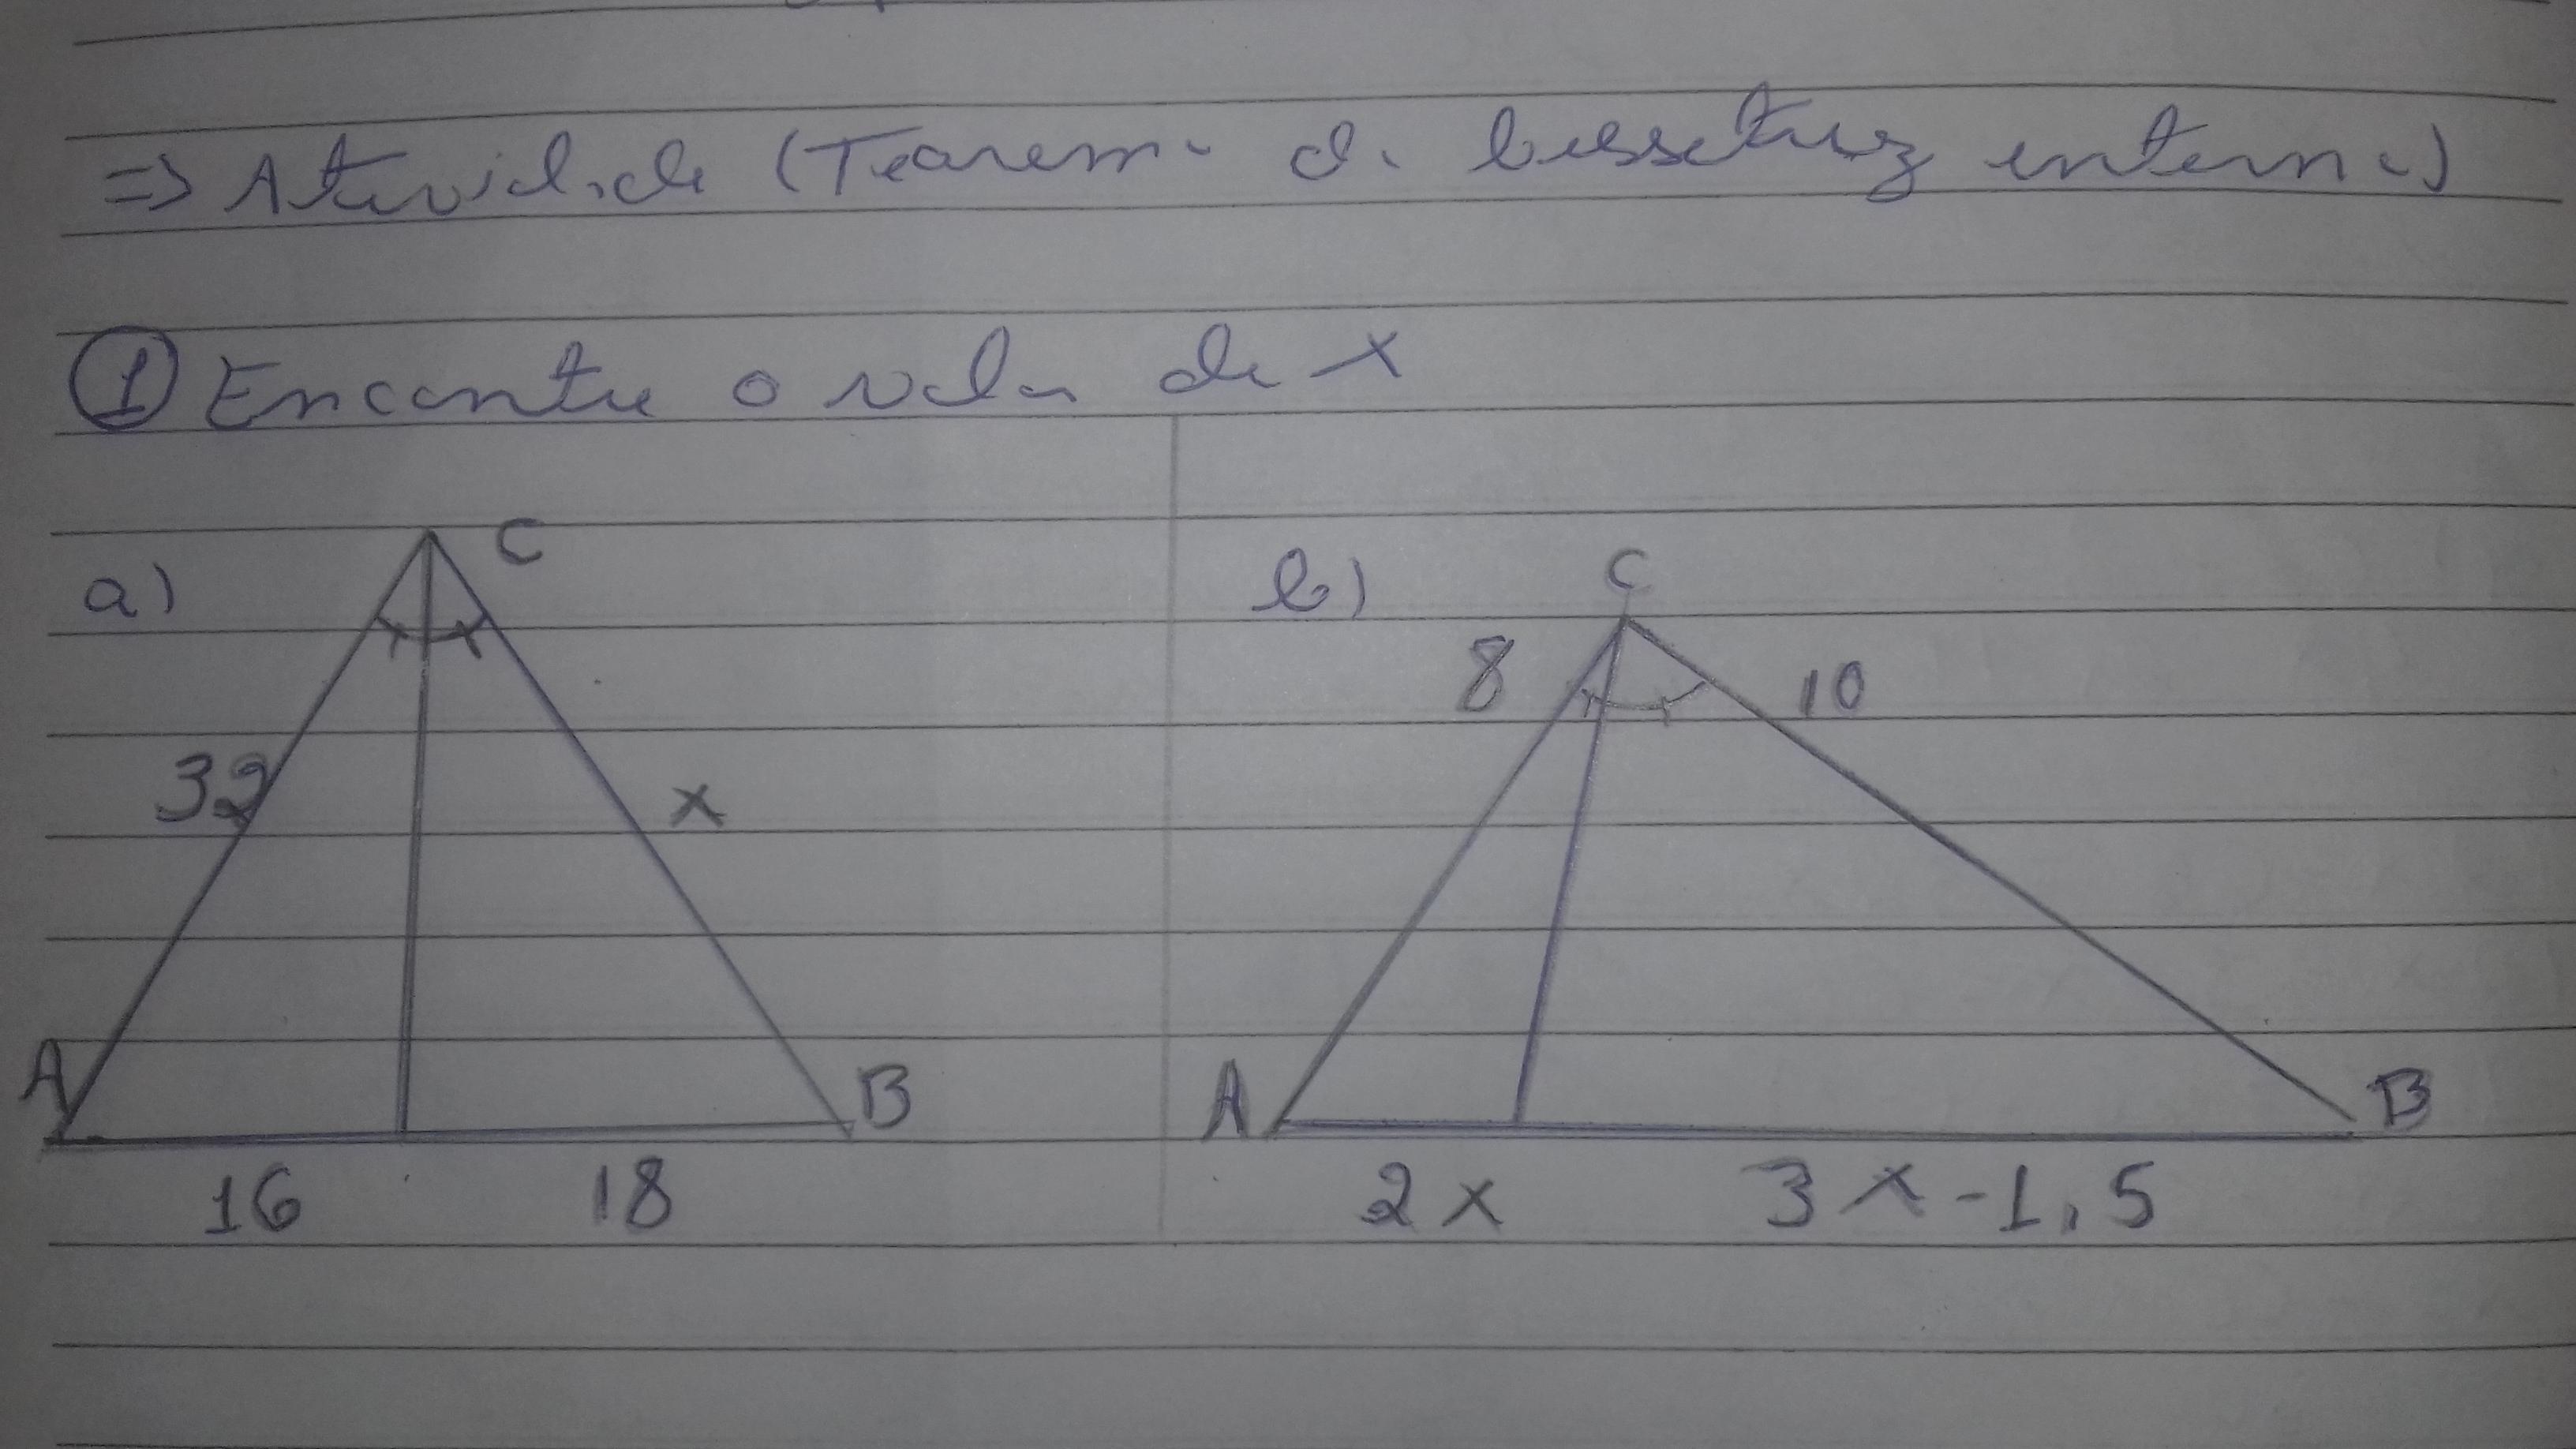 => Atividade (Teorema da bissetriz interna)
① Encontre o valor de x
a) C
b) C
8 10
32 x
A B
A B
16 18
2x 3x-1,5